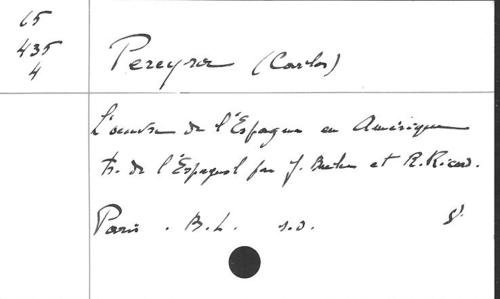 65
435
4
Pereyra (Carlos)
L'oeuvre de l'Espagne en Amérique
tr. de l'Espagnol par J. et R. Ricard.
Paris. B.L. s.d. 8°